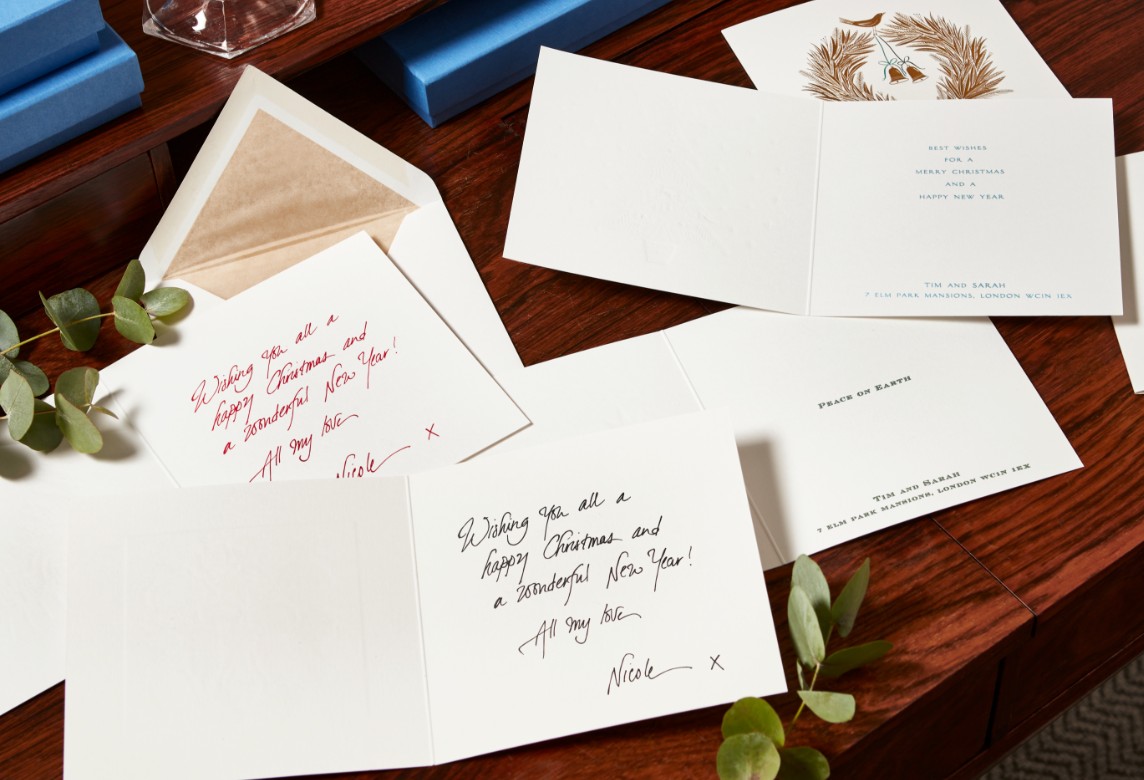 BEST WISHES
FOR A
MERRY CHRISTMAS
AND A
HAPPY NEW YEAR
TIM AND SARAH
7 ELM PARK MANSIONS, LONDON WC1N 1EX
Wishing you all a
happy Christmas and
a wonderful New Year!
All my love
Nicole x
PEACE ON EARTH
TIM AND SARAH
7 ELM PARK MANSIONS, LONDON WC1N 1EX
Wishing you all a
happy Christmas and
a wonderful New Year!
All my love
Nicole x